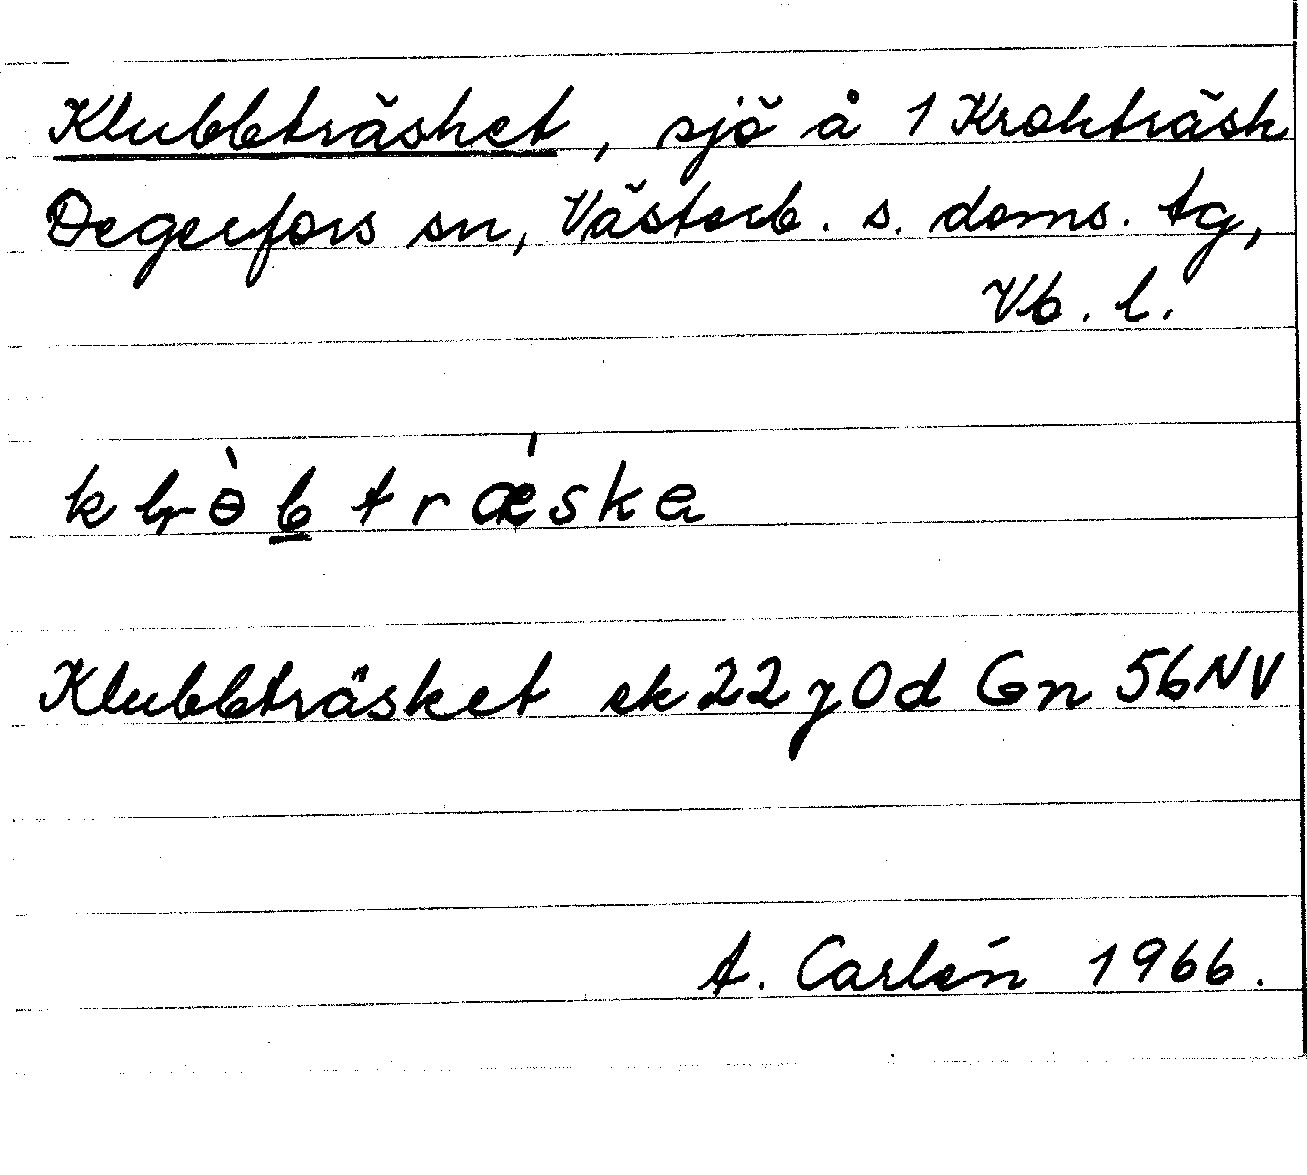 Klubbträsket, sjö å 1 Krokträsk
Degerfors sn, Västerb. s. doms. tg,
Vb. l.
Klubbträsket ek 22 7 0 d Gn 56 NV
A. Carlén 1966.